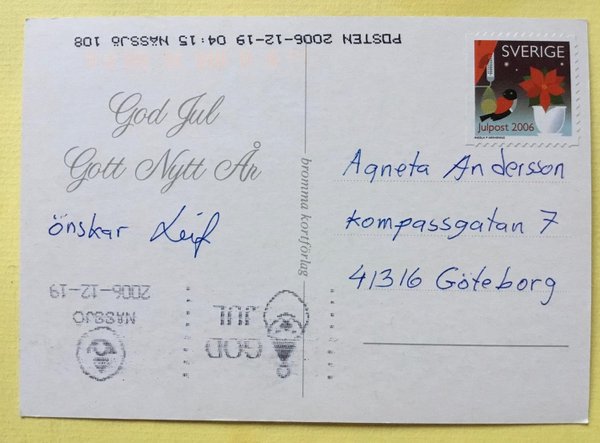 POSTEN 2006-12-19 04:15 NÄSSJÖ 108
SVERIGE
Julpost 2006
God Jul
Gott Nytt År
önskar Leif
bromma kortförlag
Agneta Andersson
Kompassgatan 7
41316 Göteborg
GOD
JUL
NÄSSJÖ
2006-12-19